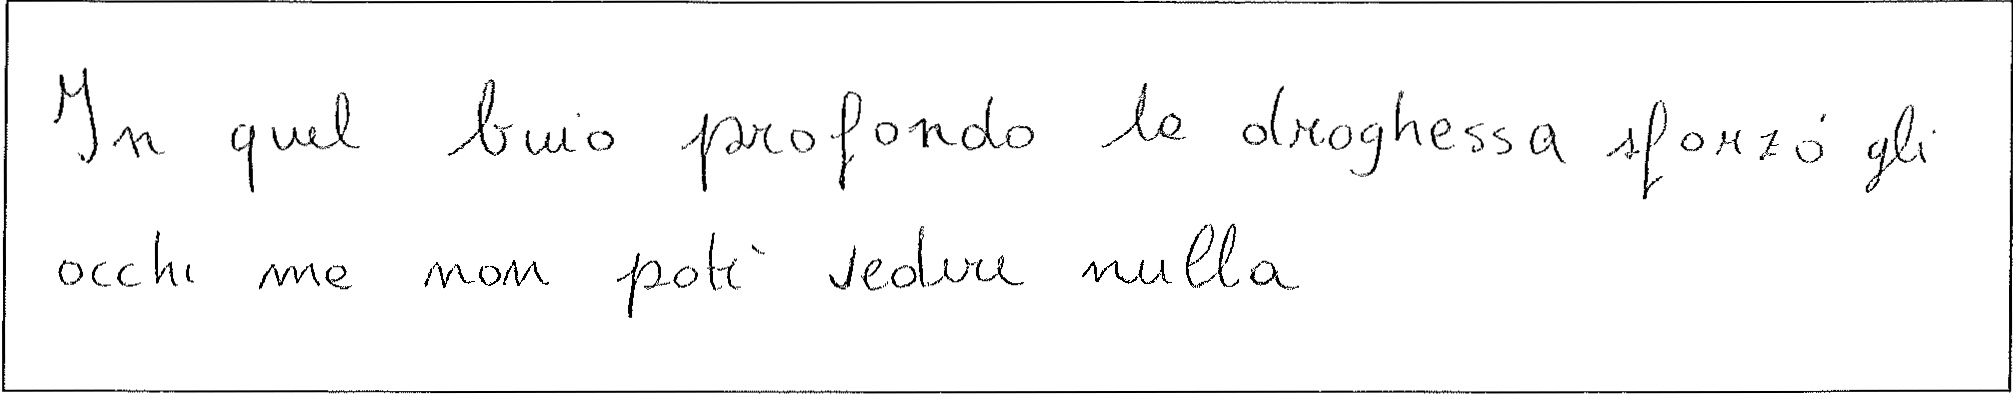 In quel buio profondo la droghessa sforzó gli
occhi ma non potè vedere nulla